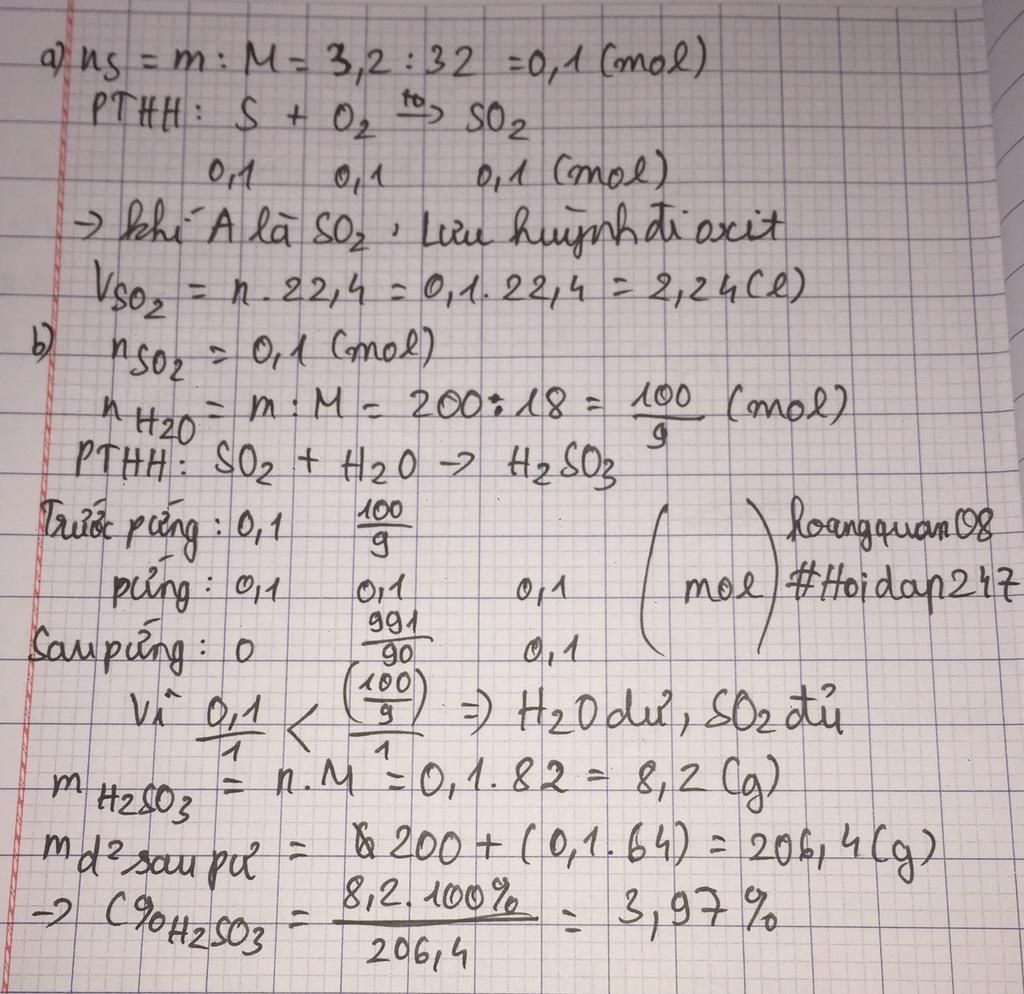 a) nS = m : M = 3,2 : 32 = 0,1 (mol)
PTHH: S + O2 →(to) SO2
0,1 0,1 0,1 (mol)
→ khí A là SO2, Lưu huỳnh đi oxit
VSO2 = n . 22,4 = 0,1 . 22,4 = 2,24 (l)
b) nSO2 = 0,1 (mol)
nH2O = m : M = 200 : 18 = 100/9 (mol)
PTHH: SO2 + H2O → H2SO3
Trước pứng : 0,1 100/9
pứng : 0,1 0,1 0,1 (mol)
Sau pứng : 0 991/90 0,1
hoangquan08
#Hoidap247
Vì 0,1/1 < (100/9)/1 ⇒ H2O dư, SO2 đủ
mH2SO3 = n . M = 0,1 . 82 = 8,2 (g)
md² sau pư = 200 + (0,1 . 64) = 206,4 (g)
→ C%H2SO3 = 8,2 . 100%/206,4 = 3,97%